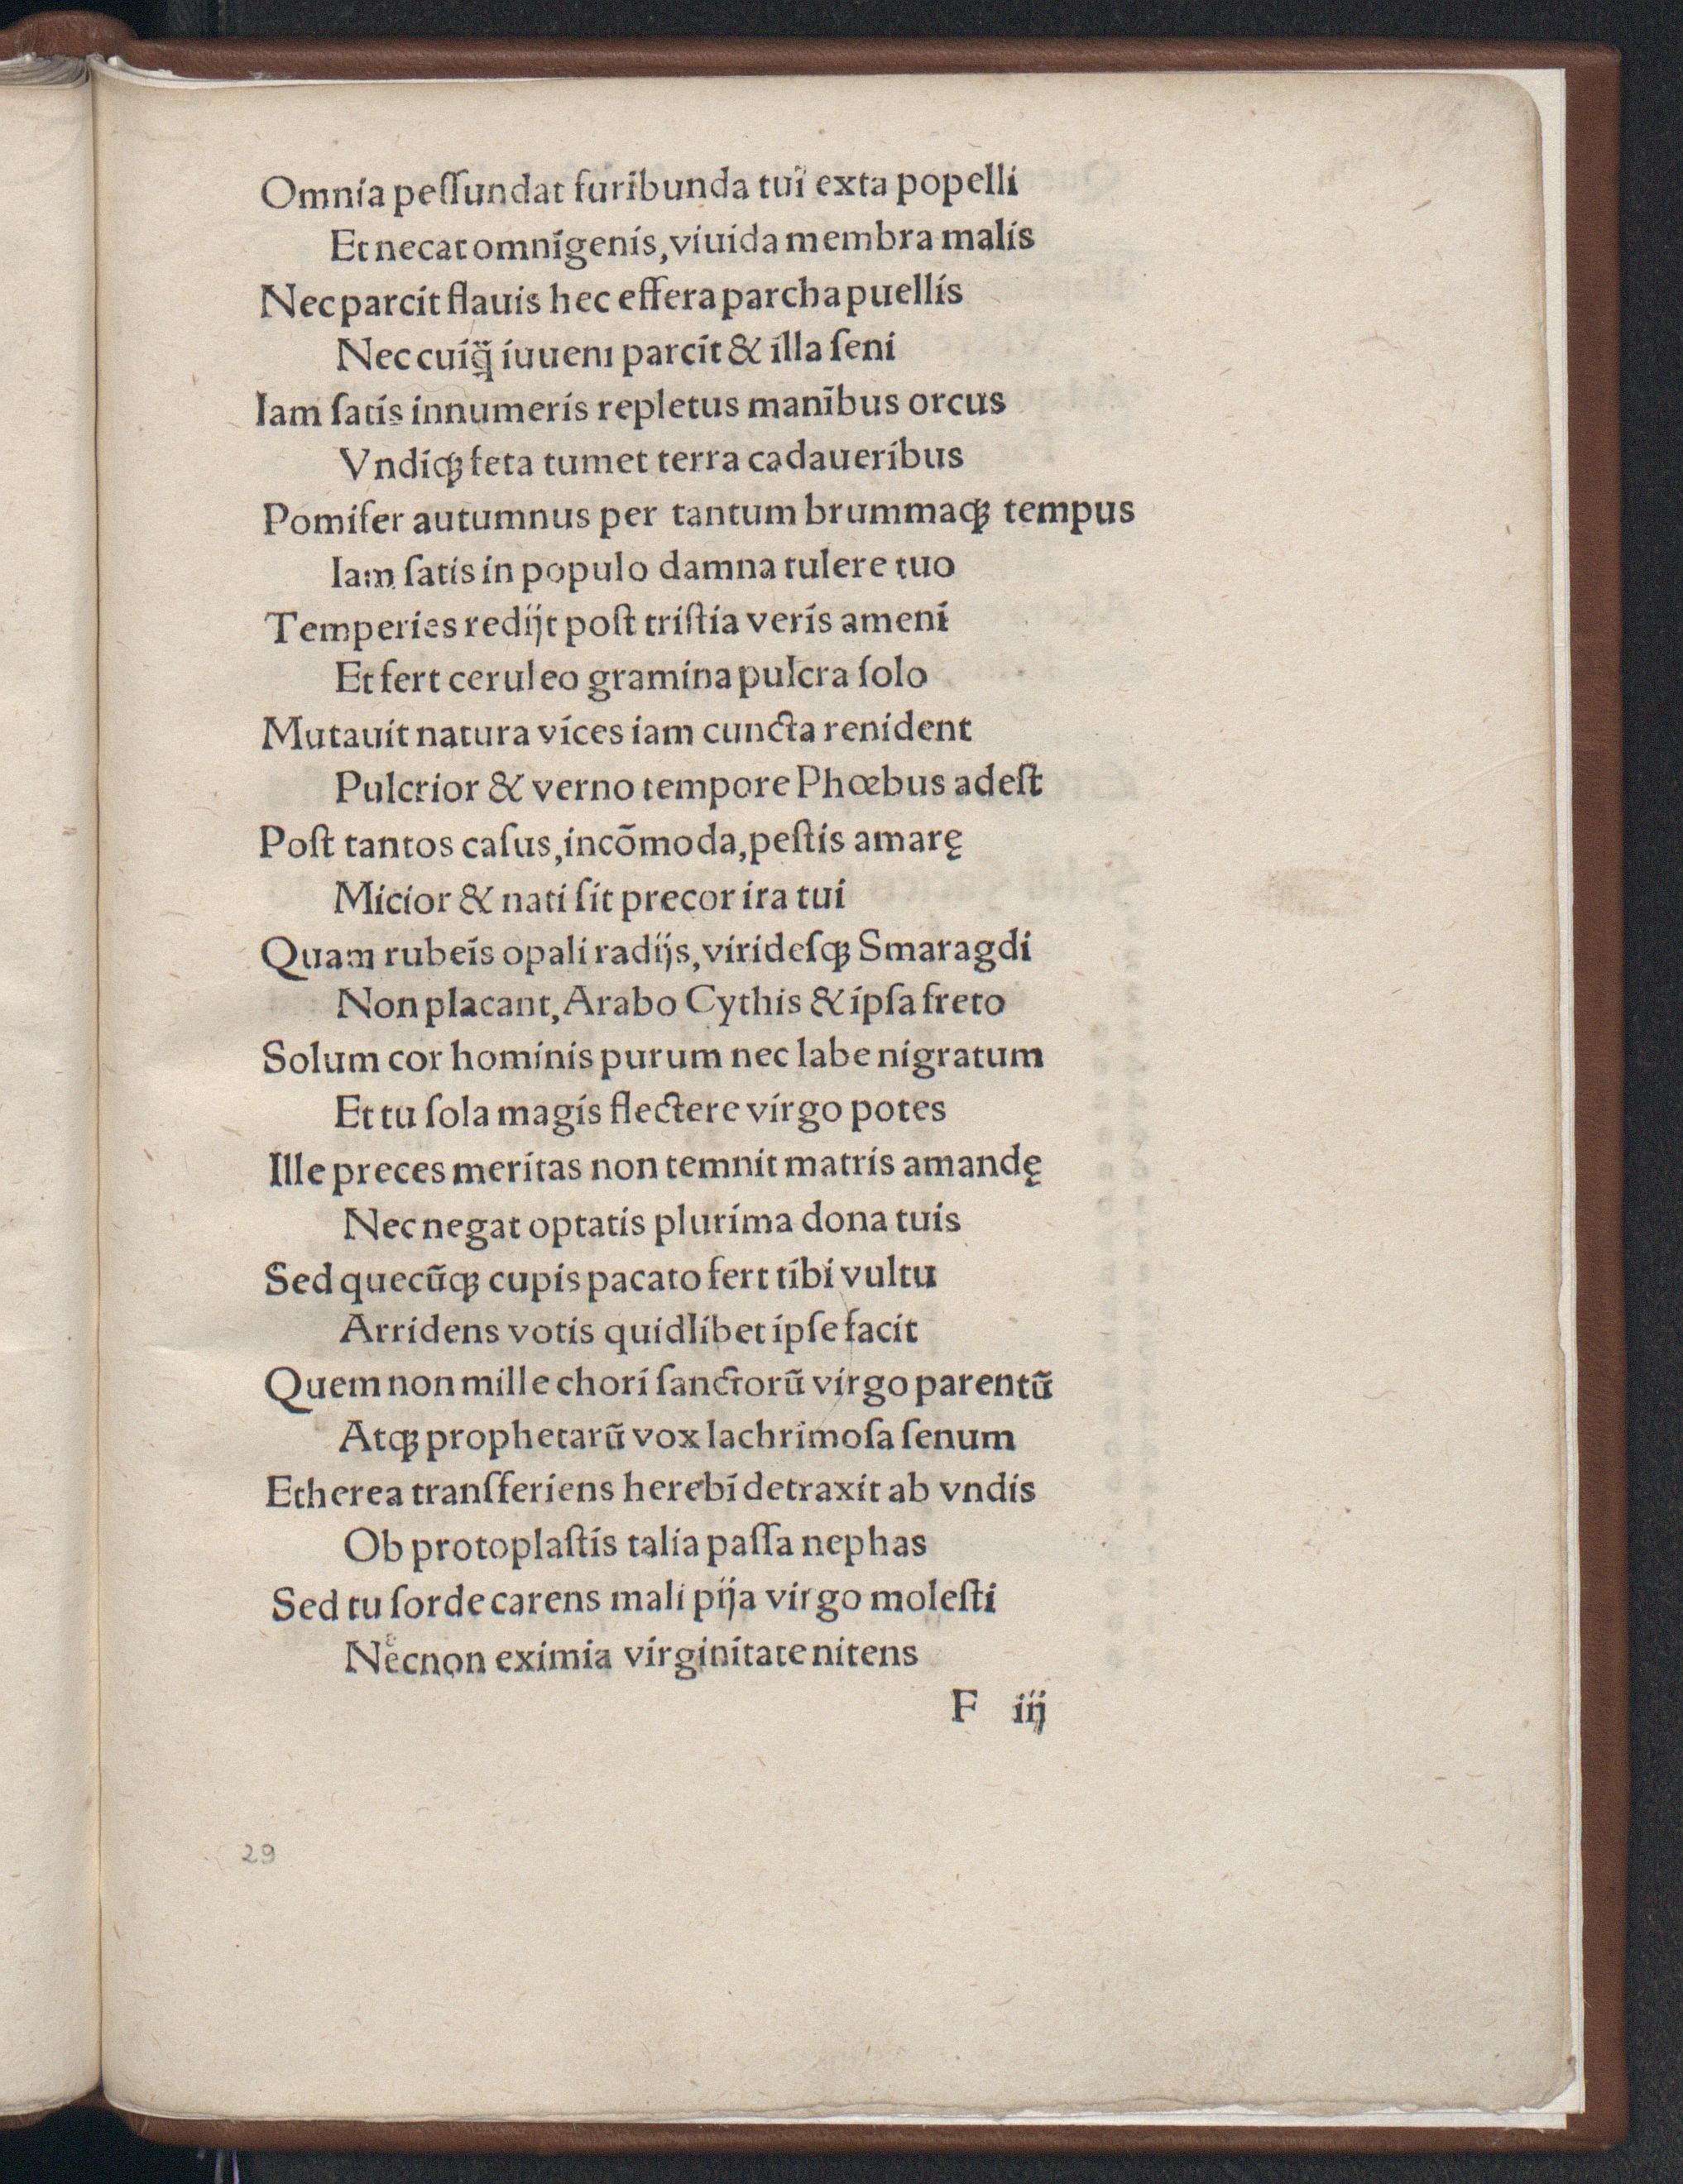 Omnia peſſundat furibunda tui exta popelli
Et necat omnigenis, viuida membra malis
Nec parcit flauis hec effera parcha puellis
Nec cuiq̃ iuueni parcit & illa ſeni
Iam ſatis innumeris repletus manĩbus orcus
Vndiqꝫ feta tumet terra cadaueribus
Pomifer autumnus per tantum brummaqꝫ tempus
Iam ſatis in populo damna tulere tuo
Temperies redijt poſt triſtia veris ameni
Et fert ceruleo gramina pulcra ſolo
Mutauit natura vices iam cuncta renident
Pulcrior & verno tempore Phœbus adeſt
Poſt tantos caſus, incõmoda, peſtis amarę
Micior & nati ſit precor ira tui
Quam rubeis opali radijs, virideſqꝫ Smaragdi
Non placant, Arabo Cythis & ipſa freto
Solum cor hominis purum nec labe nigratum
Et tu ſola magis flectere virgo potes
Ille preces meritas non temnit matris amandę
Nec negat optatis plurima dona tuis
Sed quecũqꝫ cupis pacato fert tibi vultu
Arridens votis quidlibet ipſe facit
Quem non mille chori ſanctorũ virgo parentũ
Atqꝫ prophetarũ vox lachrimoſa ſenum
Etherea tranſferiens herebi detraxit ab vndis
Ob protoplaſtis talia paſſa nephas
Sed tu ſorde carens mali pija virgo moleſti
Necnon eximia virginitate nitens
F iij
29